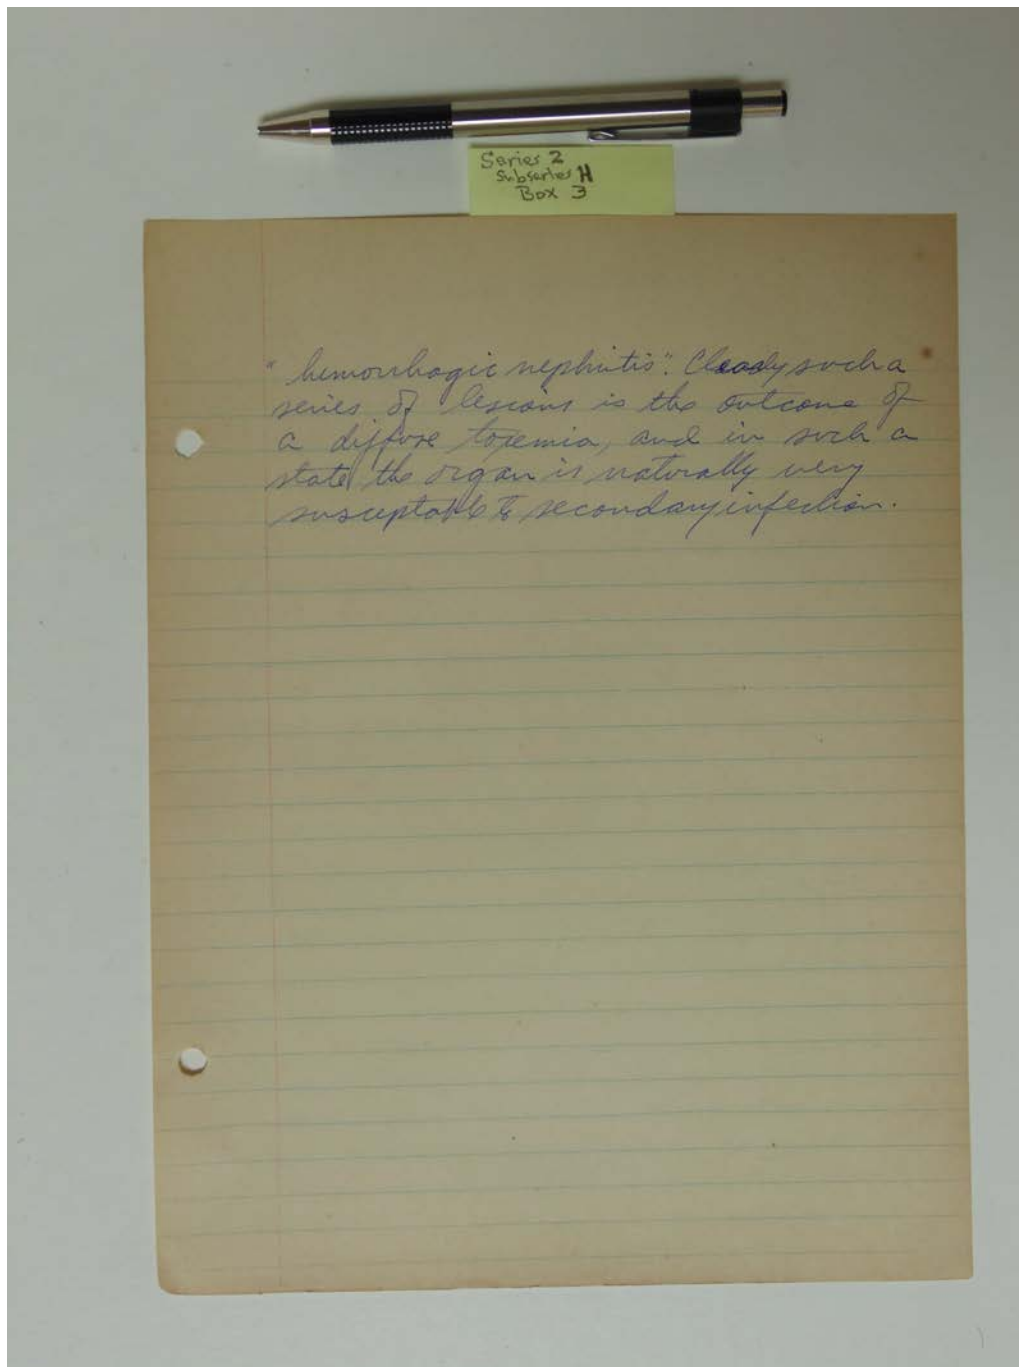 Series 2
Subseries H
Box 3
"hemorrhagic nephritis". Clearly such a
series of lesions is the outcome of
a diffuse toxemia, and in such a
state the organ is naturally very
susceptable to secondary infection.